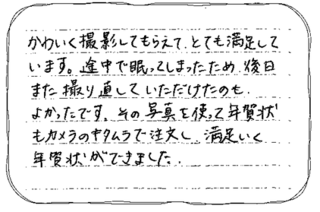 かわいく撮影してもらえて、とても満足して
います。途中で眠ってしまったため、後日
また撮り直していただけたのも、
よかったです。その写真を使って年賀状
もカメラのキタムラで注文し、満足いく
年賀状ができました。